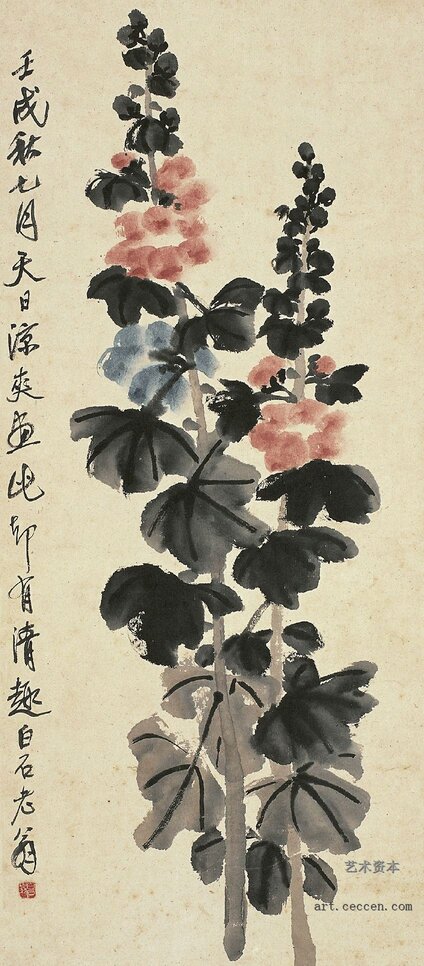 壬戌秋七月天日凉爽画此却有清趣白石老翁
艺术资本
art.ceccen.com